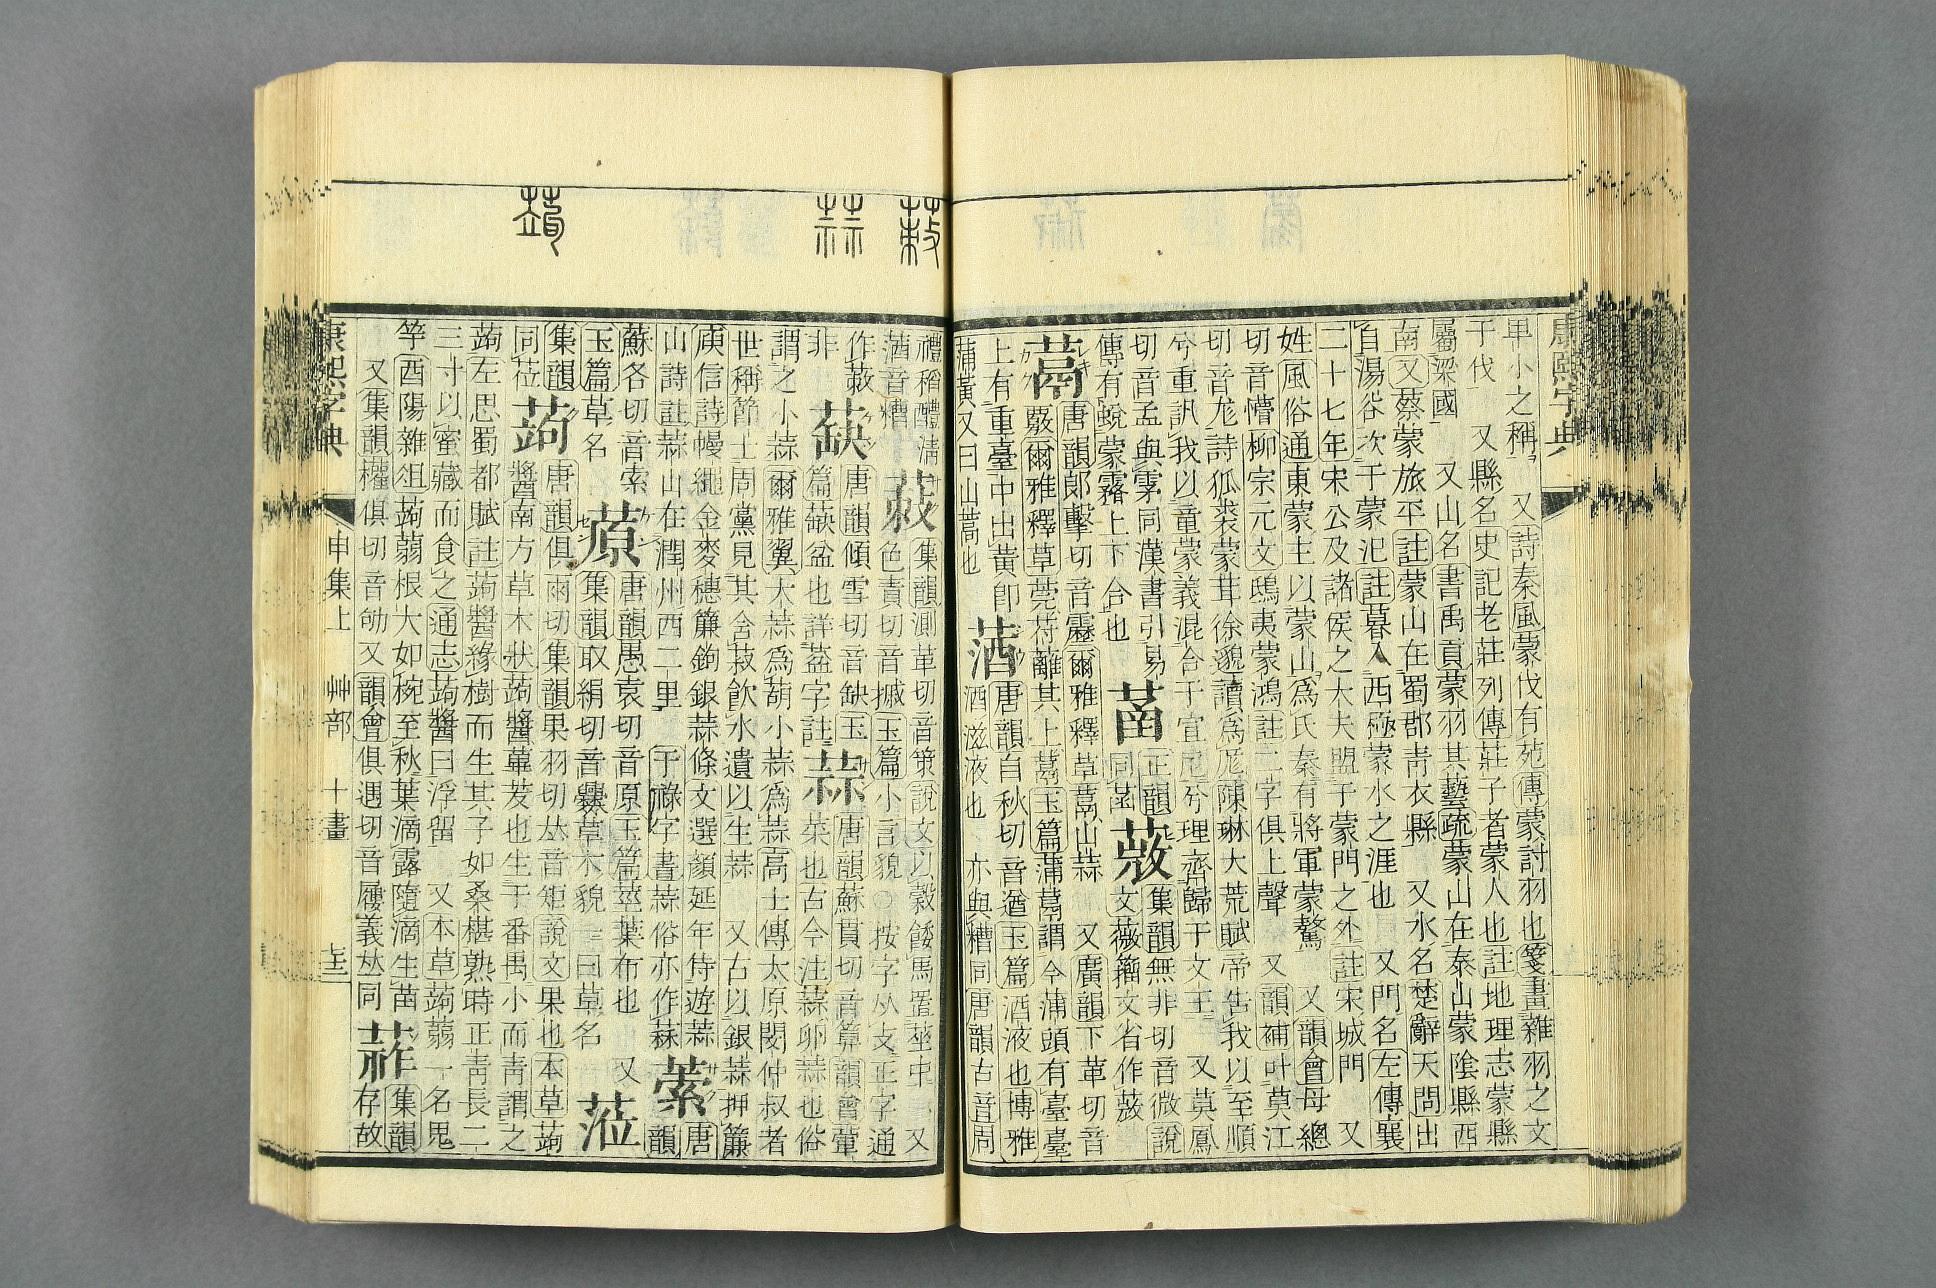 康熙字典
草小之稱 又詩秦風蒙伐有苑傳蒙討羽也箋畫雜羽之文
于伐 又縣名史記老莊列傳莊子者蒙人也註地理志蒙縣
屬梁國 又山名書禹貢蒙羽其藝疏蒙山在泰山蒙陰縣西
南又蔡蒙旅平註蒙山在蜀郡靑衣縣 又水名楚辭天問出
自湯谷次于蒙汜註暮入西極蒙水之涯也 又門名左傳襄
二十七年宋公及諸侯之大夫盟于蒙門之外註宋城門 又
姓風俗通東蒙主以蒙山爲氏秦有將軍蒙驁 又韻會母總
切音懵柳宗元文鴟夷蒙鴻註二字俱上聲 又韻補叶莫江
切音尨詩狐裘蒙茸徐邈讀爲厖陳琳大荒賦帝告我以至順
兮重訊我以童蒙義混合于宣尼兮理齊歸于文王 又莫鳳
切音孟與雺同漢書引易
傳有蜺蒙霧上下合也
正韻同
集韻無非切音微說
文薇籀文省作
蒚
唐韻郎擊切音靂爾雅釋草蒚山蒜 又廣韻下革切音
覈爾雅釋草莞苻蘺其上蒚玉篇蒲蒚謂今蒲頭有臺臺
上有重臺中出黃卽
蒲黃又曰山蒿也
蒏
唐韻自秋切音遒玉篇酒液也博雅
酒滋液也 亦與糟同唐韻古音周
禮稻醴淸
蒏音糟
蓛
集韻測革切音策說文以穀餧馬置莝中 又
色責切音摵玉篇小言貌○按字从攴正字通
作蓛
非
蒛
唐韻傾雪切音缺玉
篇蒛盆也詳葐字註
蒜
唐韻蘇貫切音筭韻會葷
菜也古今注蒜卵蒜也俗
謂之小蒜爾雅翼大蒜爲葫小蒜爲蒜高士傳太原閔仲叔者
世稱節士周黨見其含菽飲水遺以生蒜 又古以銀蒜押簾
庾信詩幔繩金麥穗簾鉤銀蒜條文選顏延年侍遊蒜
山詩註蒜山在潤州西二里 干祿字書蒜俗亦作
唐韻
蘇各切音索
玉篇草名
蒝
唐韻愚袁切音原玉篇莖葉布也 又
集韻取絹切音縓草木貌一曰草名
蒞
集韻
同莅
蒟
唐韻俱雨切集韻果羽切𠀤音矩說文果也本草蒟
醬南方草木狀蒟醬蓽茇也生于番禺小而靑謂之
蒟左思蜀都賦註蒟醬緣樹而生其子如桑椹熟時正靑長二
三寸以蜜藏而食之通志蒟醬曰浮留 又本草蒟蒻一名鬼
芋酉陽雜俎蒟蒻根大如椀至秋葉滴露隨滴生苗
又集韻權俱切音劬又韻會俱遇切音屨義𠀤同
集韻
存故
康熙字典 申集上 艸部 十畫